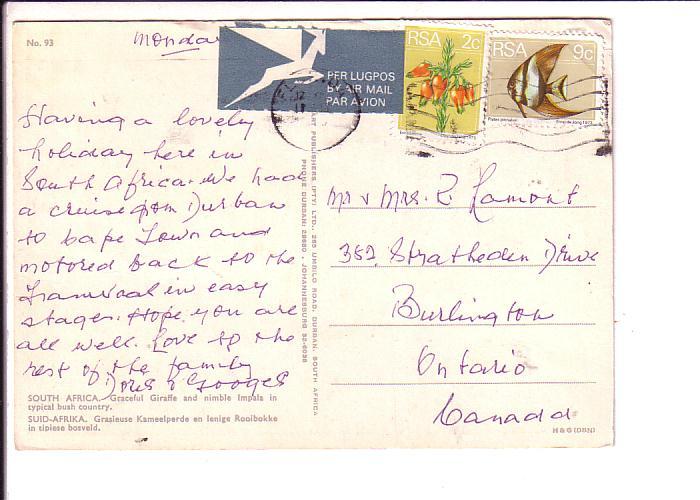 No. 93
Monday
PER LUGPOS
BY AIR MAIL
PAR AVION
RSA 2c
RSA 9c
Having a lovely
holiday here in
South Africa. We had
a cruise from Durban
to Cape Town and
motored back to the
Transvaal in easy
stages. Hope you are
all well. Love to the
rest of the family
Doris &
Mr & Mrs. R Lamont
352, Stratheden Drive
Burlington
Ontario
Canada
ART PUBLISHERS (PTY) LTD., 265 UMBILO ROAD, DURBAN, SOUTH AFRICA
PHONE DURBAN JOHANNESBURG
SOUTH AFRICA. Graceful Giraffe and nimble Impala in
typical bush country.
SUID-AFRIKA. Grasieuse Kameelperde en lenige Rooibokke
in tipiese bosveld.
H & G (DBN)